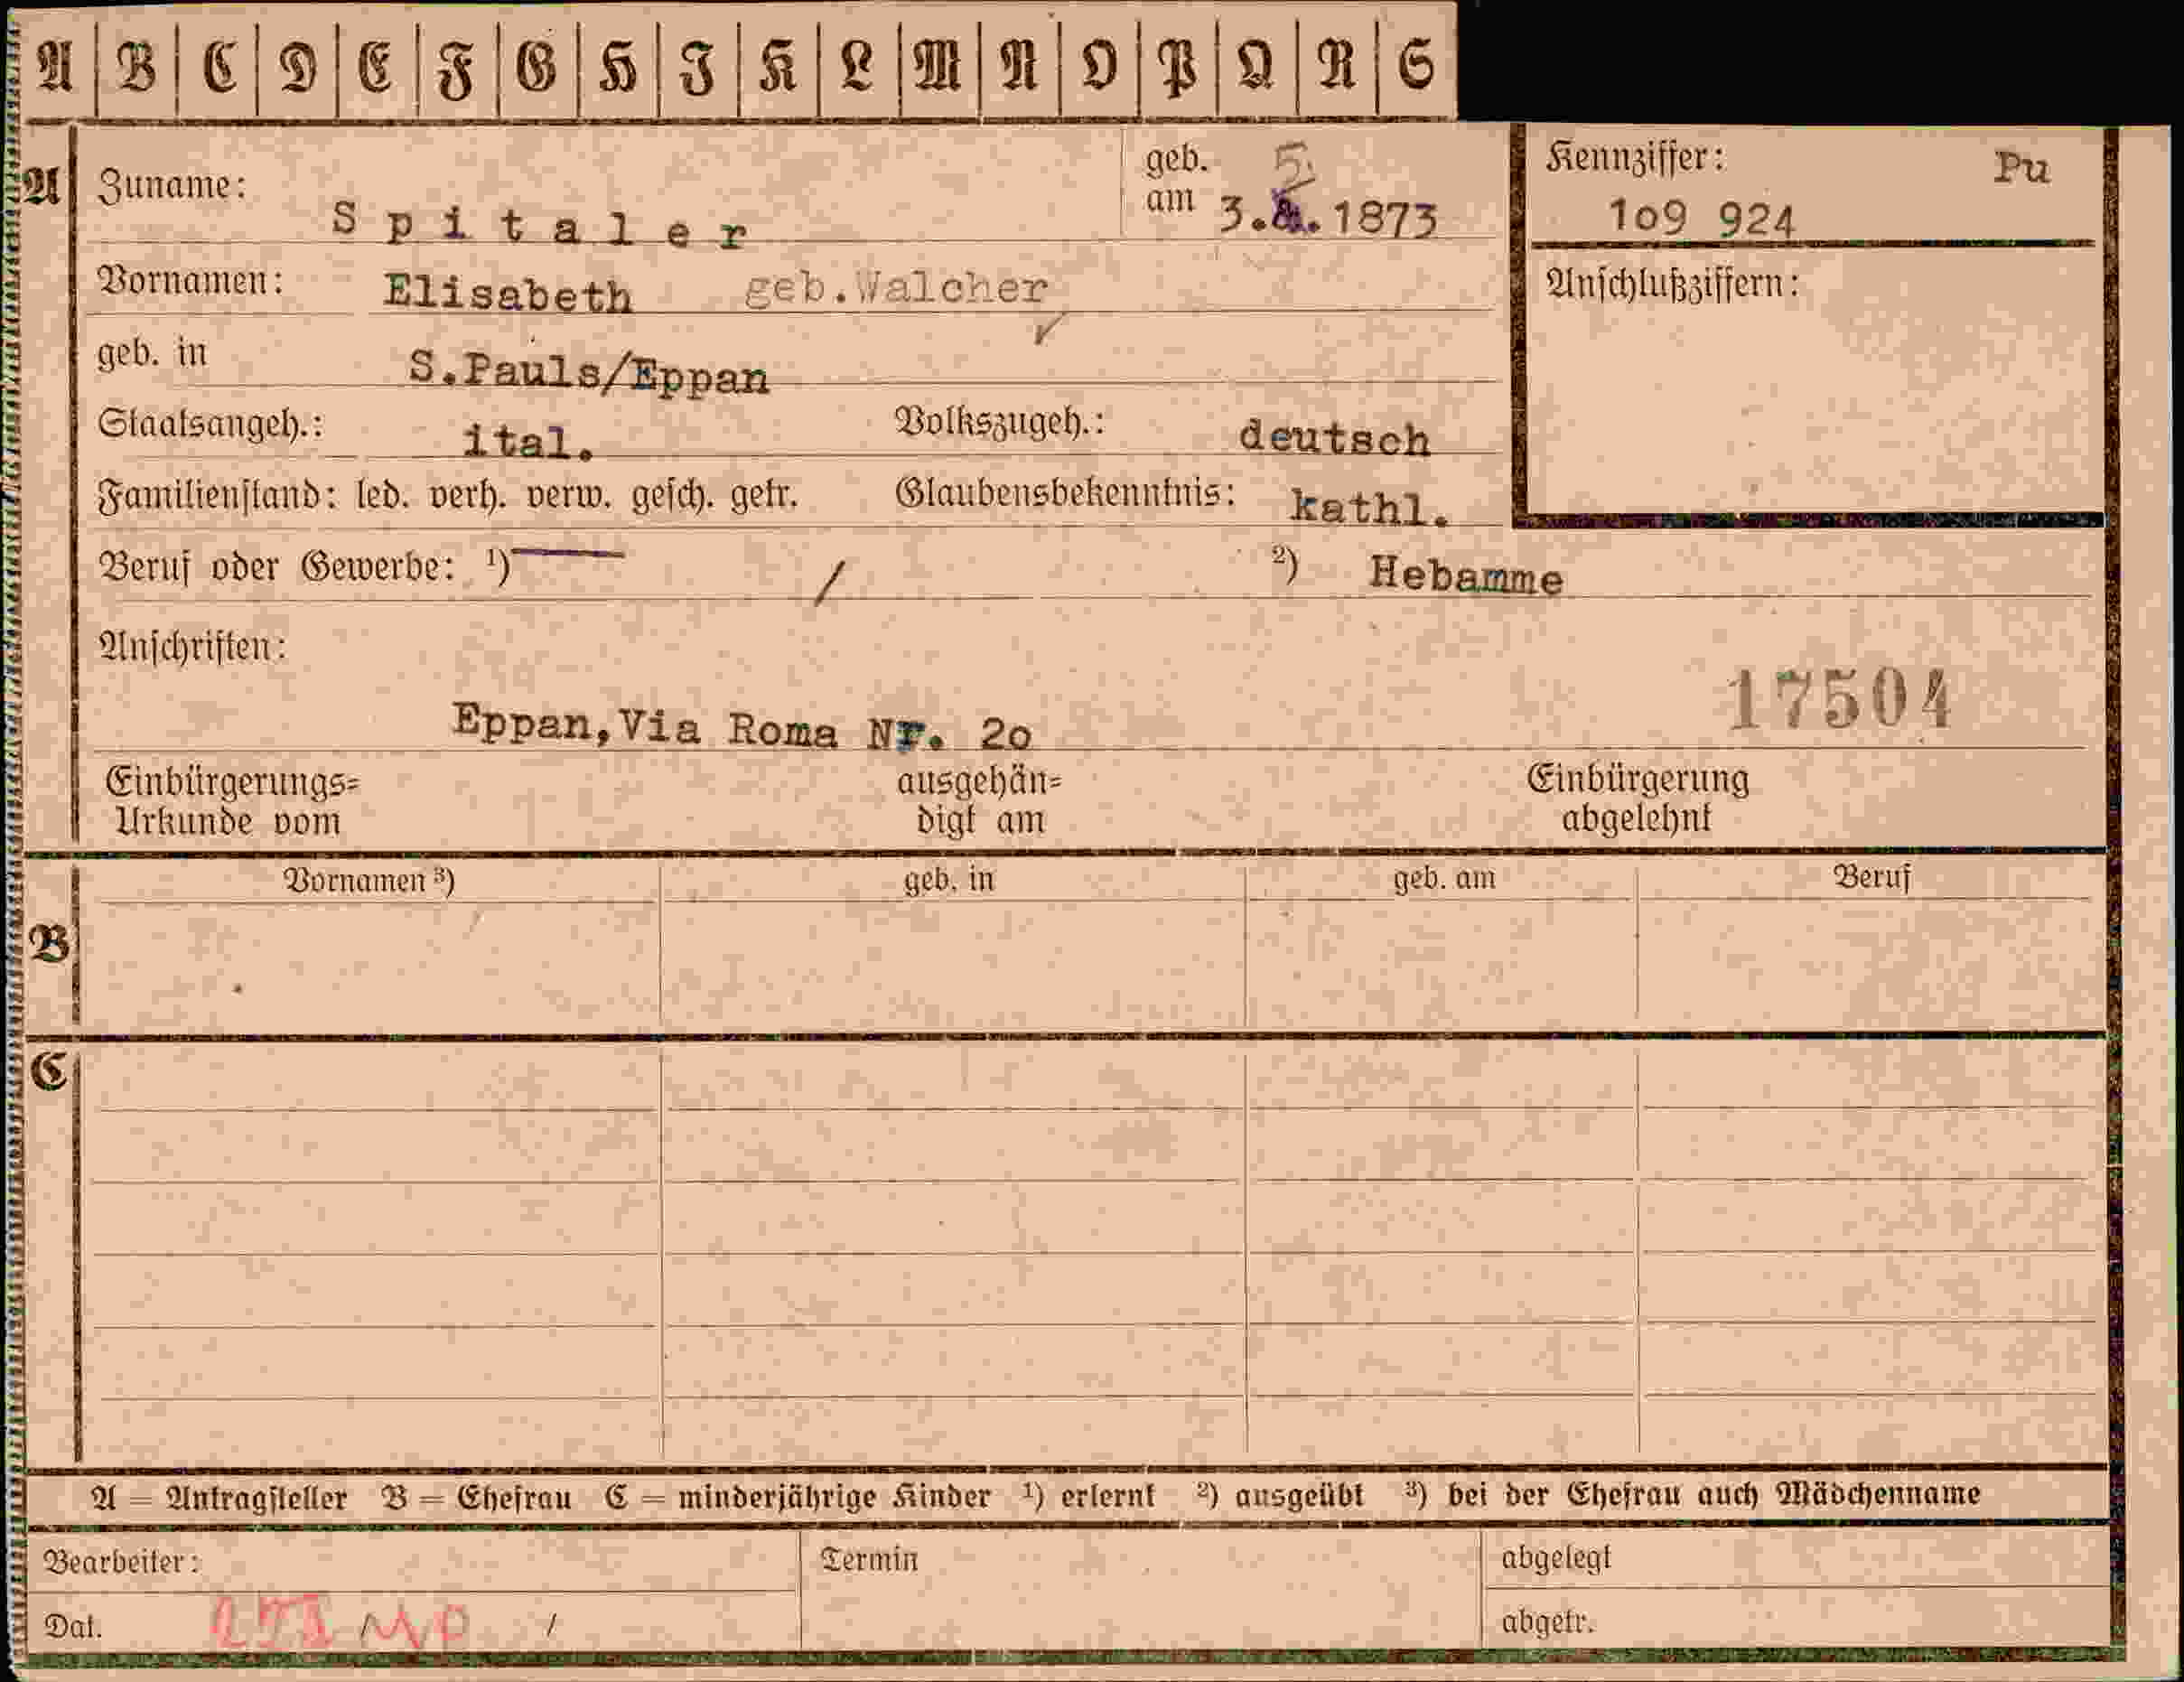 A B C D E F G H I K L M N O P Q R S
A Zuname: Spitaler geb. am 5. 3. 1873 Kennziffer: Pu
109 924
Vornamen: Elisabeth geb.Walcher Anschlußziffern:
geb. in S.Pauls/Eppan
Staatsangeh.: ital. Volkszugeh.: deutsch
Familienstand: led. verh. verw. gesch. getr. Glaubensbekenntnis: kathl.
Beruf oder Gewerbe: ¹) / ²) Hebamme
Anschriften:
17504
Eppan,Via Roma Nr. 2o
Einbürgerungs= ausgehän= Einbürgerung
Urkunde vom digt am abgelehnt
Vornamen ³) geb. in geb. am Beruf
B
C
A = Antragsteller B = Ehefrau C = minderjährige Kinder ¹) erlernt ²) ausgeübt ³) bei der Ehefrau auch Mädchenname
Bearbeiter: Termin abgelegt
Dat. / abgetr.